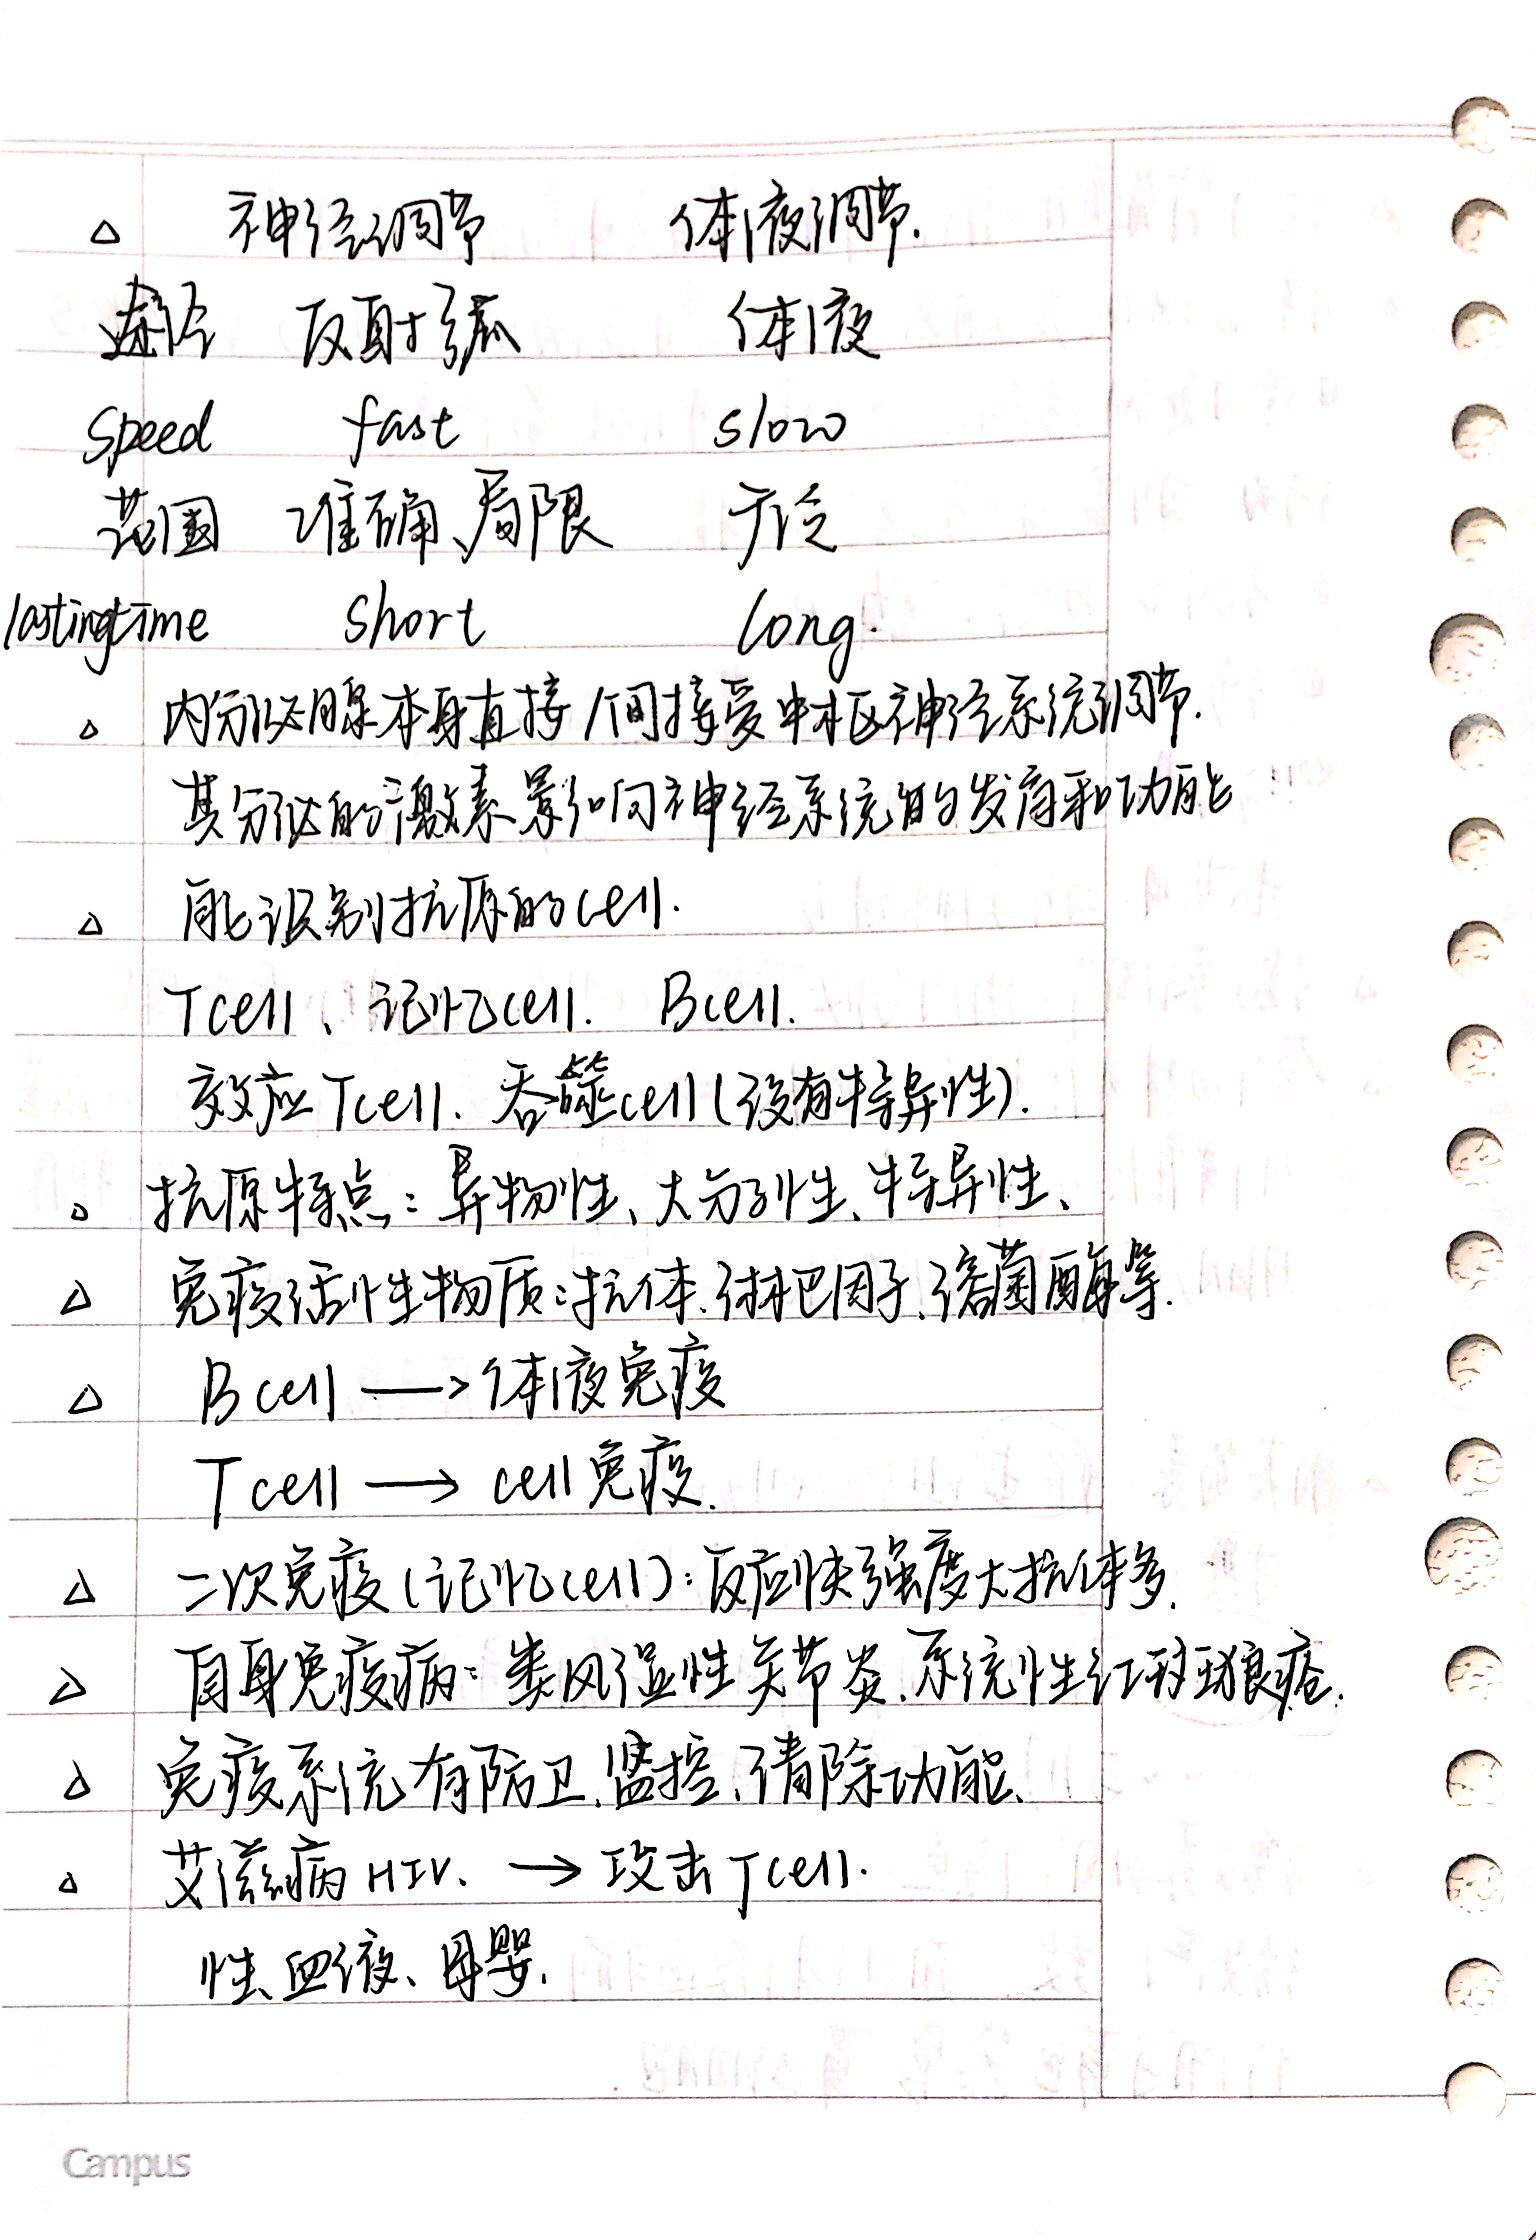 △ 神经调节 体液调节.
途径 反射弧 体液
speed fast slow
范围 准确、局限 广泛
lastingtime short long.
△ 内分泌腺本身直接/间接受中枢神经系统调节.
其分泌的激素影响神经系统的发育和功能
△ 能识别抗原的cell.
Tcell、记忆cell. Bcell.
效应Tcell. 吞噬cell(没有特异性).
△ 抗原特点:异物性、大分子性、特异性、
△ 免疫活性物质:抗体.淋巴因子.溶菌酶等.
△ Bcell → 体液免疫
Tcell → cell免疫.
△ 二次免疫(记忆cell):反应快强度大抗体多.
△ 自身免疫病:类风湿性关节炎.系统性红斑狼疮.
△ 免疫系统有防卫.监控、清除功能.
△ 艾滋病HIV. → 攻击Tcell.
性、血液、母婴.
Campus